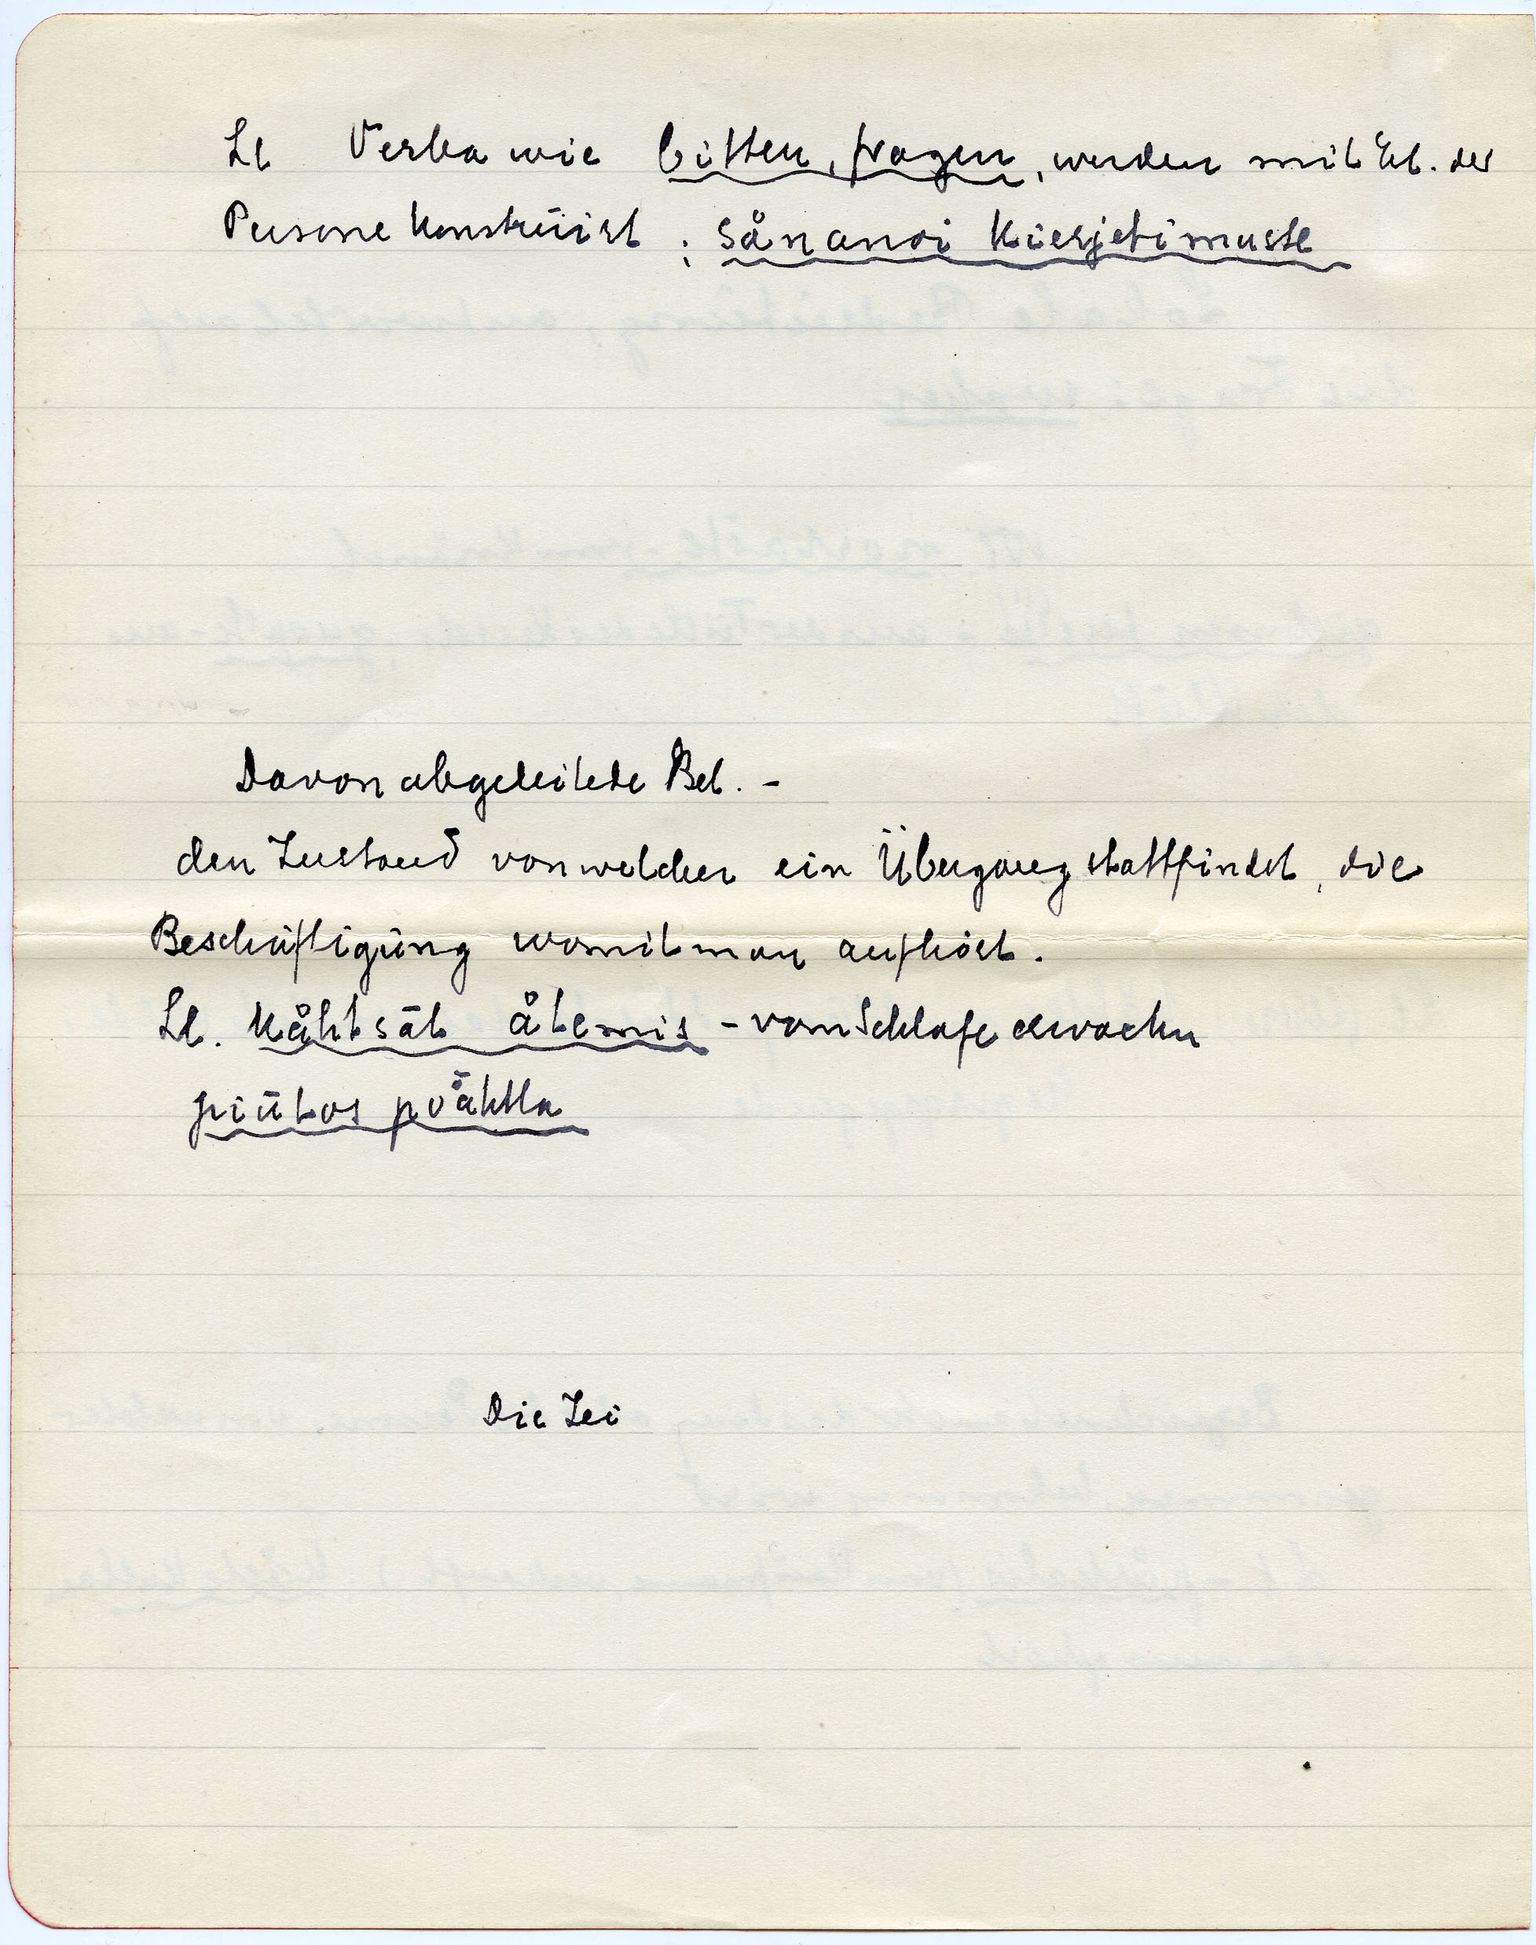 Ll Verba wie bitten, fragen, werden mit El. der
Persone konstruiert; sånanoi kiesjetimuste
Davon abgeleitede Bed. -
den Zustand von welcher ein Übergang stattfindet, die
Beschäftigung womit man aufhört.
Ll. kåhtsāt åtemis - vom Schlafe erwachn
piūtos
Die Zei